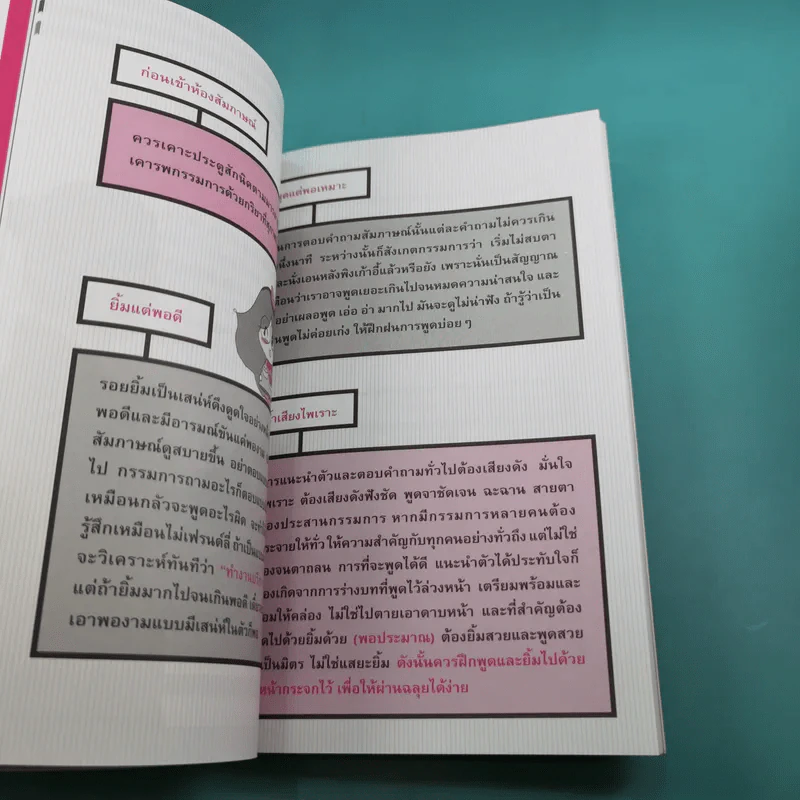 ก่อนเข้าห้องสัมภาษณ์
ควรเคาะประตูสักนิดตาม
เคารพกรรมการด้วยกริยาที่
ยิ้มแต่พอดี
รอยยิ้มเป็นเสน่ห์ดึงดูดใจอย่าง
พอดีและมีอารมณ์ขันแต่พองาม
สัมภาษณ์ดูสบายขึ้น อย่าตอบ
ไป กรรมการถามอะไรก็ตอบ
เหมือนกลัวจะพูดอะไรผิด จะทำ
รู้สึกเหมือนไม่เฟรนด์ลี่ ถ้าเป็น
จะวิเคราะห์ทันทีว่า "ทำงาน
แต่ถ้ายิ้มมากไปจนเกินพอดี
เอาพองามแบบมีเสน่ห์ในตัวก็
พูดแต่พอเหมาะ
นการตอบคำถามสัมภาษณ์นั้นแต่ละคำถามไม่ควรเกิน
นึ่งนาที ระหว่างนั้นก็สังเกตกรรมการว่า เริ่มไม่สบตา
ละนั่งเอนหลังพิงเก้าอี้แล้วหรือยัง เพราะนั่นเป็นสัญญาณ
ตือนว่าเราอาจพูดเยอะเกินไปจนหมดความน่าสนใจ และ
อย่าเผลอพูด เอ่อ อ่า มากไป มันจะดูไม่น่าฟัง ถ้ารู้ว่าเป็น
นพูดไม่ค่อยเก่ง ให้ฝึกฝนการพูดบ่อย ๆ
น้ำเสียงไพเราะ
การแนะนำตัวและตอบคำถามทั่วไปต้องเสียงดัง มั่นใจ
พเราะ ต้องเสียงดังฟังชัด พูดจาชัดเจน ฉะฉาน สายตา
องประสานกรรมการ หากมีกรรมการหลายคนต้อง
ระจายให้ทั่วให้ความสำคัญกับทุกคนอย่างทั่วถึง แต่ไม่ใช่
องจนตาถลน การที่จะพูดได้ดี แนะนำตัวได้ประทับใจก็
องเกิดจากการร่างบทที่พูดไว้ล่วงหน้า เตรียมพร้อมและ
อมให้คล่อง ไม่ใช่ไปตายเอาดาบหน้า และที่สำคัญต้อง
ดไปด้วยยิ้มด้วย (พอประมาณ) ต้องยิ้มสวยและพูดสวย
เป็นมิตร ไม่ใช่แสยะยิ้ม ดังนั้นควรฝึกพูดและยิ้มไปด้วย
หน้ากระจกไว้ เพื่อให้ผ่านฉลุยได้ง่าย